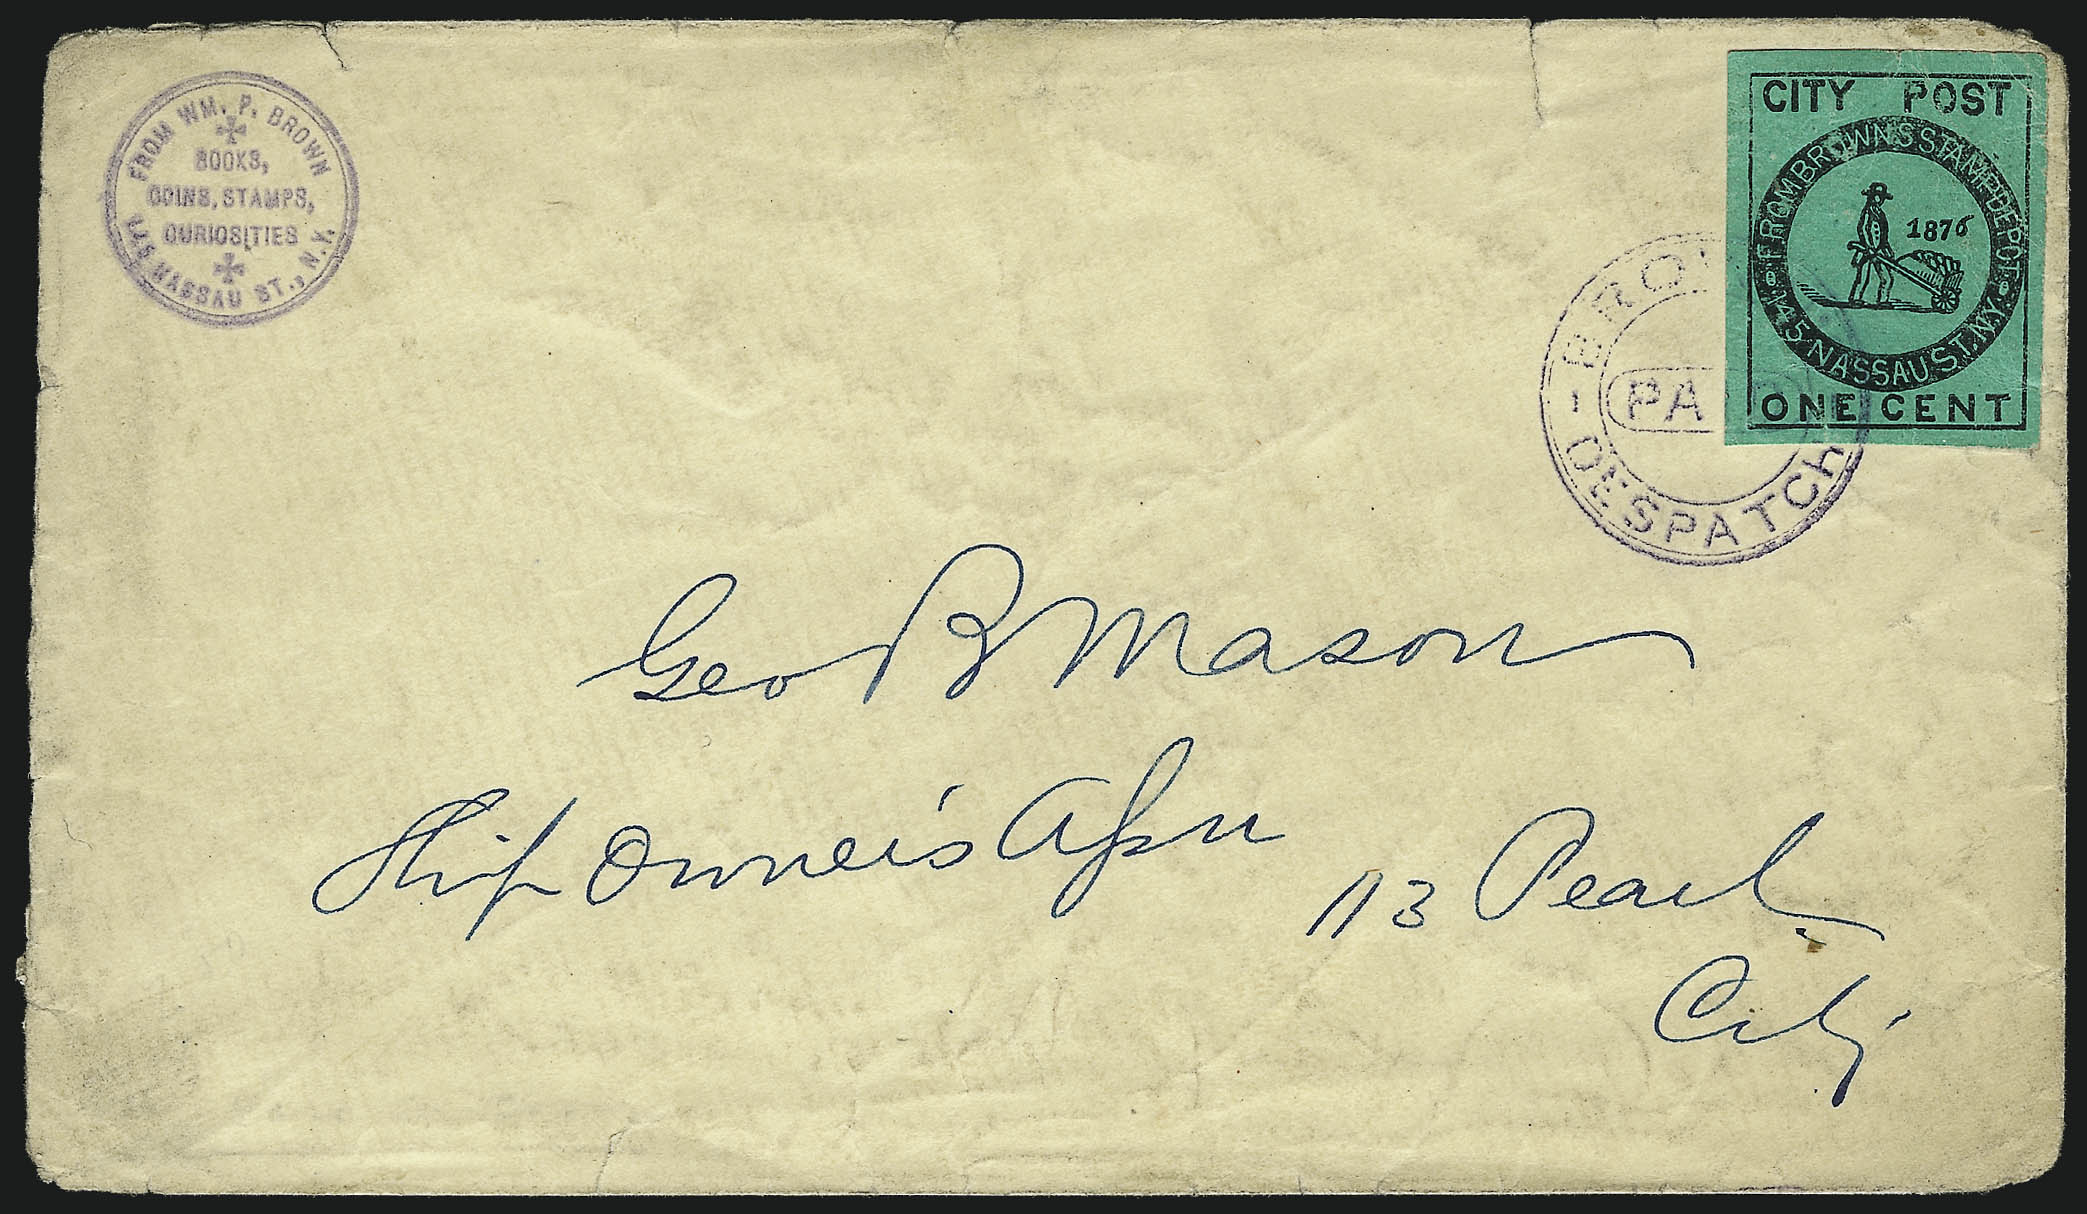 FROM WM. P. BROWN
BOOKS,
COINS, STAMPS,
CURIOSITIES
145 NASSAU ST., N.Y.
CITY POST
FROM BROWN'S STAMP DEPOT
1876
145 NASSAU ST. N.Y.
ONE CENT
DESPATCH
Geo B Mason
Ship Owner's Assn 113 Pearl
City